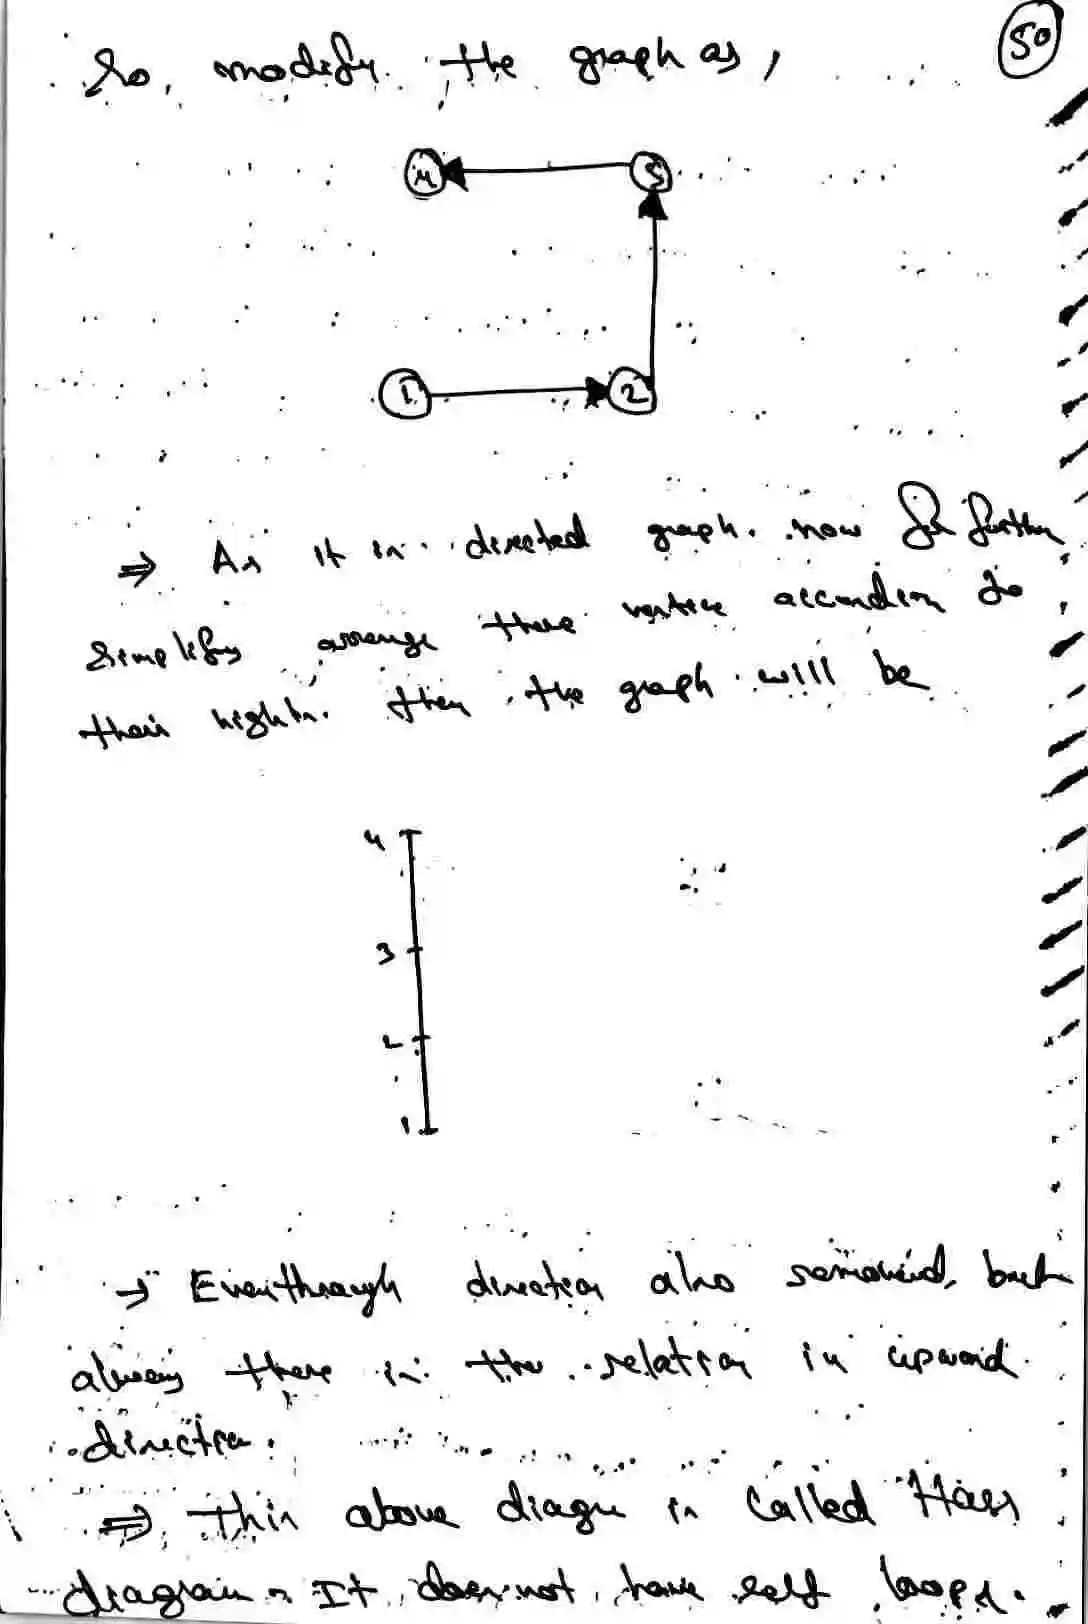 50
So, modify the graph as,
4 3
1 2
⇒ As it is directed graph. now for further
simplify arrange there vertice accordin to
their hights. then the graph will be
4
3
2
1
→ Eventhrough direction also removed, but
always there is the relation in upward
direction.
⇒ this above diagra is called Hass
diagram. It does not have self loops.